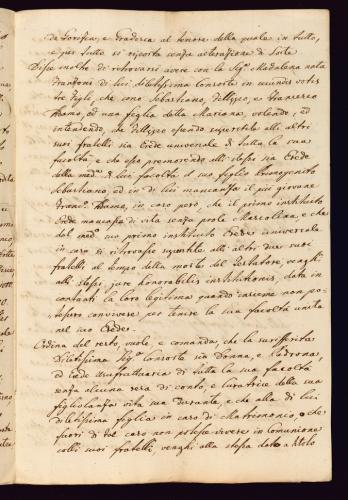 da Torosca, e Tradersa al tenore della quale in tutto,
e per tutto si riporta senza alterazione di sorte
Disse inoltre di ritrovarsi avere con la Sig.ª Madalena nata
Frantoni di lui dilettissima Consorte in numero
tre figli, che sono Sebastiano, Filippo, e Francesco
ed una figlia della Mariana, volendo, ed
intendendo, che Filippo essendo superstite alli altri
suoi fratelli sia Erede universale di tutta la sua
facoltà e che esso premorendo alli stessi sia Erede
della med.ª di lui facoltà il suo figlio
Sebastiano, ed in di lui mancanza il più giovane
Franc.º in caso però, che il primo instituito
Erede mancasse di vita senza prole Mascolina, e che
dal med.º suo primo instituito Erede universale
in caso si ritrovasse superstite alli altri due suoi
fratelli al tempo della morte del Testatore, venghi
alli stessi jure honorabilis institutionis, data in
contanti la loro legitima quando insieme non po-
tessero convivere per tenere la sua facoltà unita
nel suo Erede.
Ordina del resto, vuole, e comanda, che la suriferita
Dilettissima Sig.ª Consorte sia Donna, e Padrona,
ed Erede usufruttuaria di tutta la sua facoltà
senza alcuna resa di conto, e curatrice della sua
figliolanza vita sua durante, e che alla di lui
dilettissima figlia in caso di Matrimonio, o che
fuori di tal caso non potesse vivere in Comunione
colli suoi fratelli, venghi alla stessa dato a titolo